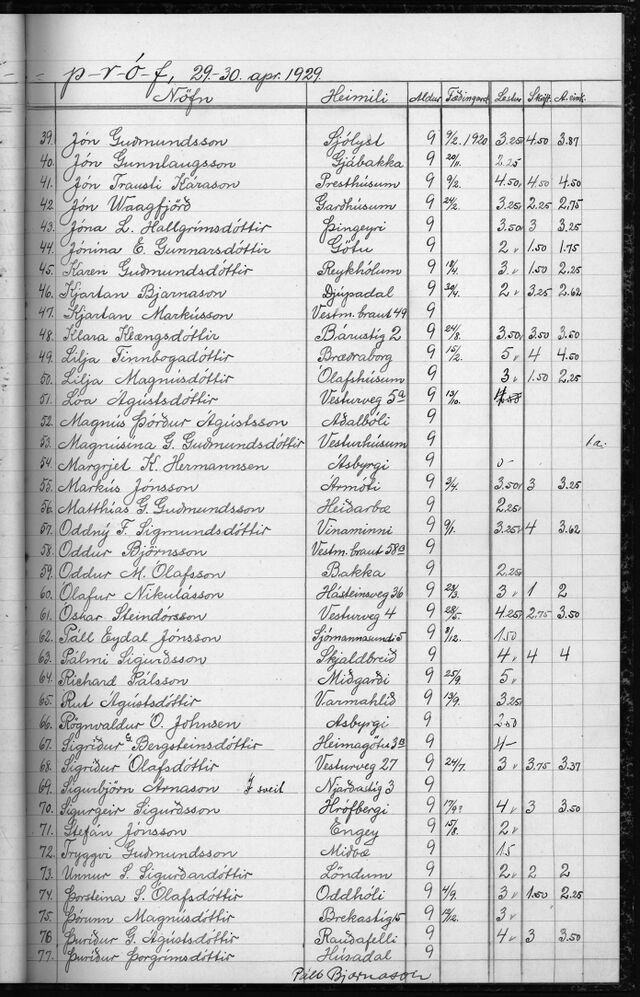 = p-r-ó-f, 29.-30. apr. 1929.
Nöfn Heimili Aldur Fæðingard. Lestur Skrift. A.eink.
39. Jón Guðmundsson Sjólyst 9 9/2. 1920 3.25 4.50 3.87
40. Jón Gunnlaugsson Gjábakka 9 20/11. 2.25
41. Jón Trausti Kárason Presthúsum 9 9/2. 4.50 4.50 4.50
42. Jón Waagfjörð Garðhúsum 9 24/2. 3.25 2.25 2.75
43. Jóna L. Hallgrímsdóttir Þingeyri 9 3.50 3 3.25
44. Jónína E. Gunnarsdóttir Götu 9 2 1.50 1.75
45. Karen Guðmundsdóttir Reykhólum 9 18/4. 3 1.50 2.25
46. Kjartan Bjarnason Djúpadal 9 30/4. 2 3.25 2.62
47. Kjartan Markússon Vestm.braut 49 9
48. Klara Klængsdóttir Bárustíg 2 9 24/8. 3.50 3.50 3.50
49. Lilja Finnbogadóttir Bræðraborg 9 15/2. 5 4 4.50
50. Lilja Magnúsdóttir Ólafshúsum 9 3 1.50 2.25
51. Lóa Ágústsdóttir Vesturveg 5a 9 13/10. 4
52. Magnús Þórður Ágústsson Aðalbóli 9
53. Magnúsína G. Guðmundsdóttir Vesturhúsum 9 1a.
54. Margrjet K. Hermannsen Ásbyrgi 9 0-
55. Markús Jónsson Ármóti 9 9/4. 3.50 3 3.25
56. Matthías G. Guðmundsson Heiðarbæ 9 2.25
57. Oddný F. Sigmundsdóttir Vinaminni 9 9/1. 3.25 4 3.62
58. Oddur Björnsson Vestm.braut 58a 9
59. Oddur M. Ólafsson Bakka 9 2.25
60. Ólafur Nikulásson Hásteinsveg 36 9 23/3. 3 1 2
61. Óskar Steindórsson Vesturveg 4 9 28/5. 4.25 2.75 3.50
62. Páll Eydal Jónsson Sjómannasundi 5 9 8/12. 1.50
63. Pálmi Sigurðsson Skjaldbreið 9 4 4 4
64. Richard Pálsson Miðgarði 9 25/9. 5
65. Rut Ágústsdóttir Varmahlíð 9 13/9. 3.25
66. Rögnvaldur Ó. Johnsen Ásbyrgi 9 2.50
67. Sigríður G Bergsteinsdóttir Heimagötu 3a 9 4-
68. Sigríður Ólafsdóttir Vesturveg 27 9 24/7. 3 3.75 3.37
69. Sigurbjörn Árnason Í sveit Njarðastíg 3 9
70. Sigurgeir Sigurðsson Hrófbergi 9 17/9 4 3 3.50
71. Stefán Jónsson Engey 9 15/8. 2
72. Tryggvi Guðmundsson Miðbæ 9 1.5
73. Unnur S. Sigurðardóttir Löndum 9 2 2 2
74. Þorsteina S. Ólafsdóttir Oddhóli 9 4/9. 3 1.50 2.25
75. Þórunn Magnúsdóttir Brekastíg 5 9 3
76 Þuríður G. Ágústsdóttir Rauðafelli 9 4 3 3.50
77. Þuríður Þorgrímsdóttir Húsadal 9
Páll Bjarnason